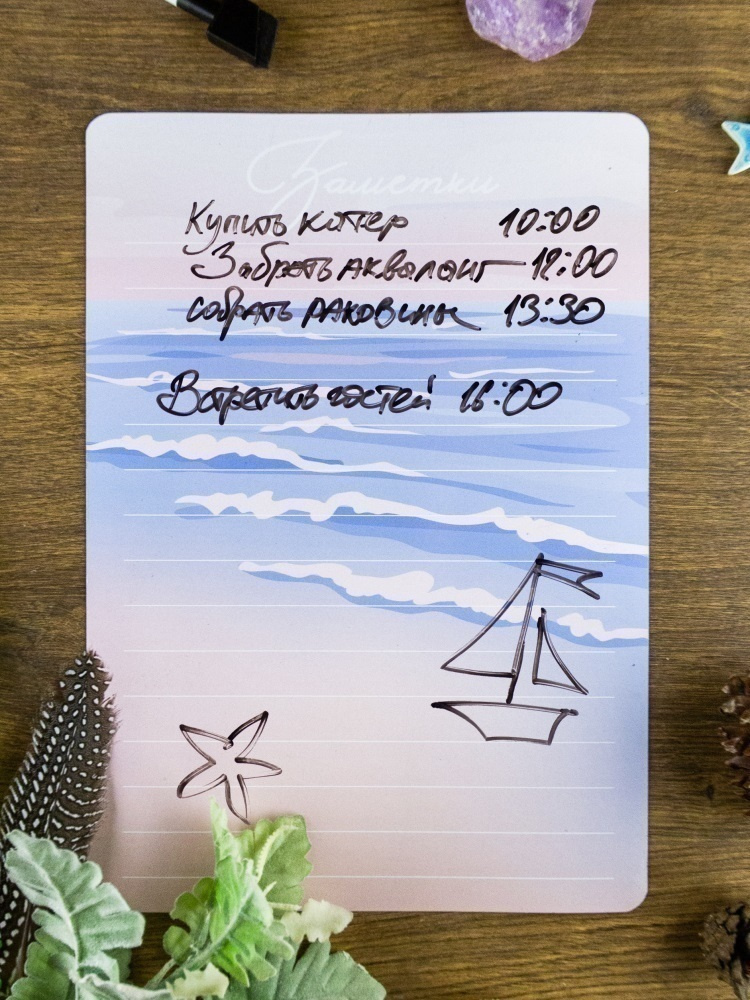 Заметки
Купить катер 10:00
Забрать акваланг — 12:00
собрать раковины 13:30
Встретить гостей 16:00